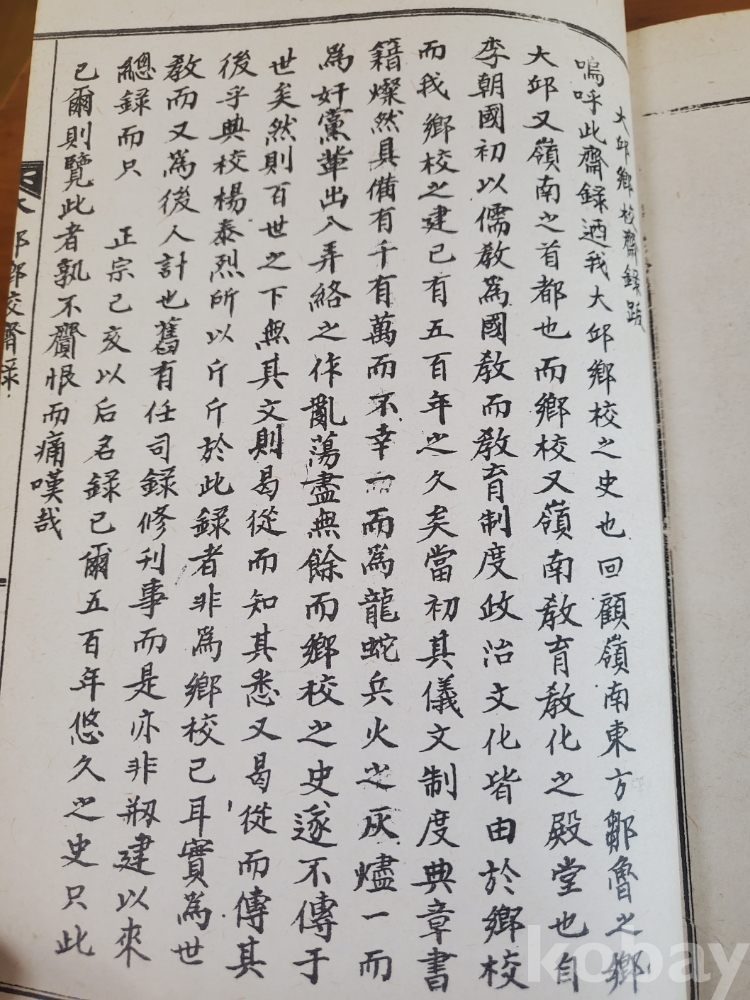 大邱鄉校齋錄跋
嗚呼此齋錄迺我大邱鄉校之史也回顧嶺南東方鄒魯之鄉
大邱又嶺南之首都也而鄉校又嶺南教育教化之殿堂也自
李朝國初以儒教爲國教而教育制度政治文化皆由於鄉校
而我鄉校之建已有五百年之久矣當初其儀文制度典章書
籍燦然具備有千有萬而不幸一而爲龍蛇兵火之灰燼一而
爲奸黨輩出入弄絡之作亂蕩盡無餘而鄉校之史遂不傳于
世矣然則百世之下無其文則曷從而知其悉又曷從而傳其
後乎典校楊泰烈所以斤斤於此錄者非爲鄉校已耳實爲世
教而又爲後人計也舊有任司錄修刊事而是亦非刱建以來
總錄而只 正宗己亥以后名錄已爾五百年悠久之史只此
已爾則覽此者孰不齎恨而痛嘆哉
大邱鄉校齋錄
kobay